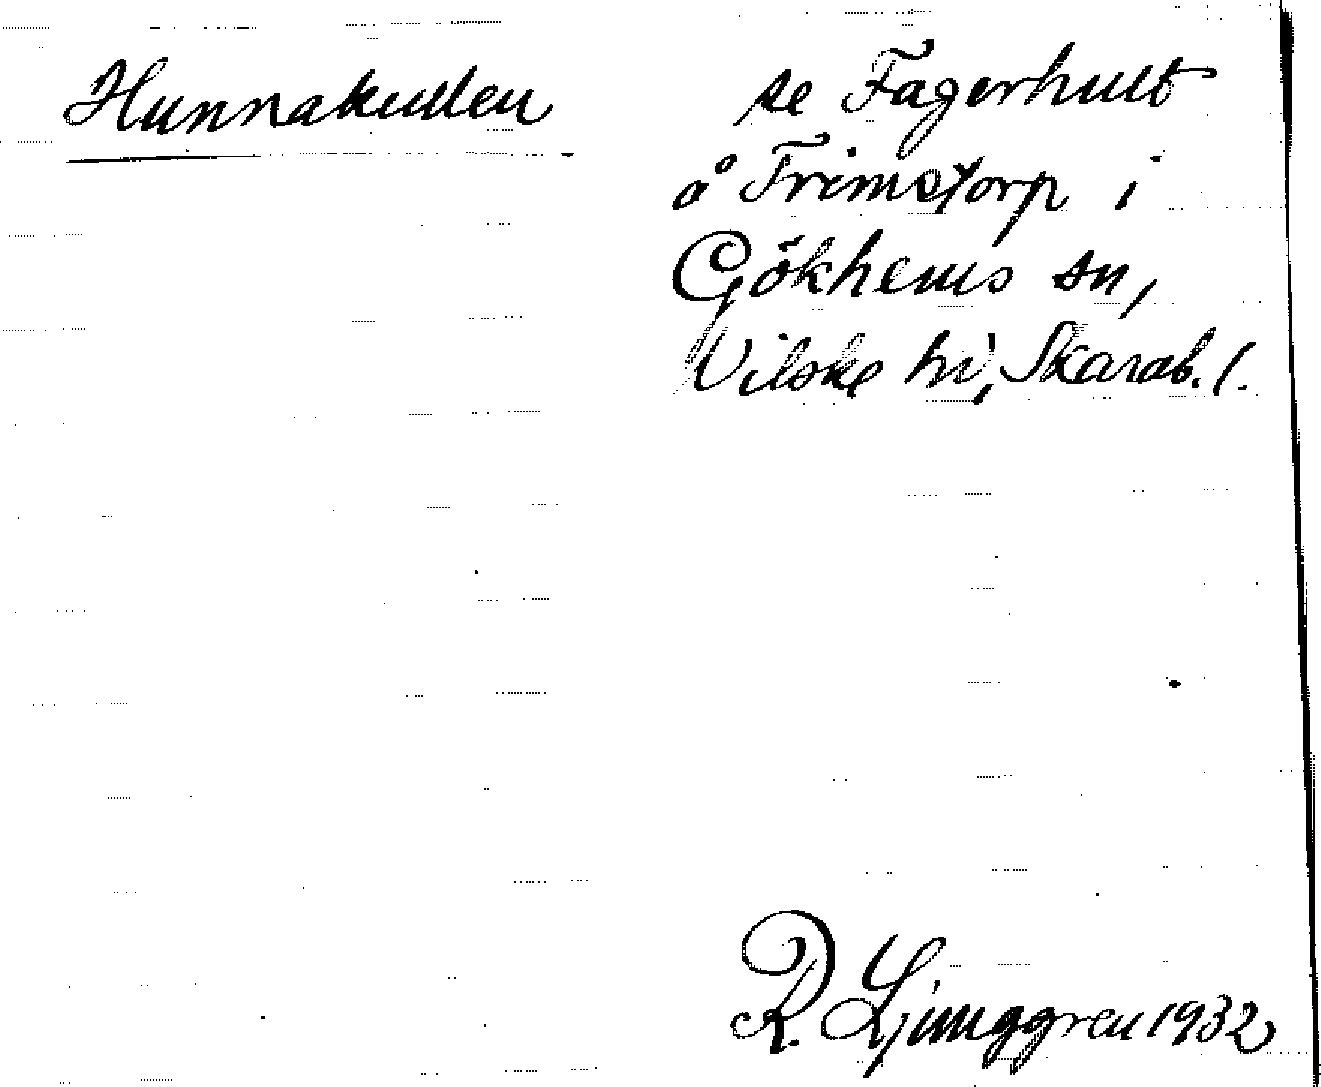 Hunnakullen
se Fagerhult
å Frimstorp i
Gökhems sn,
Vilske hd, Skarab. l.
R. Ljunggren 1932